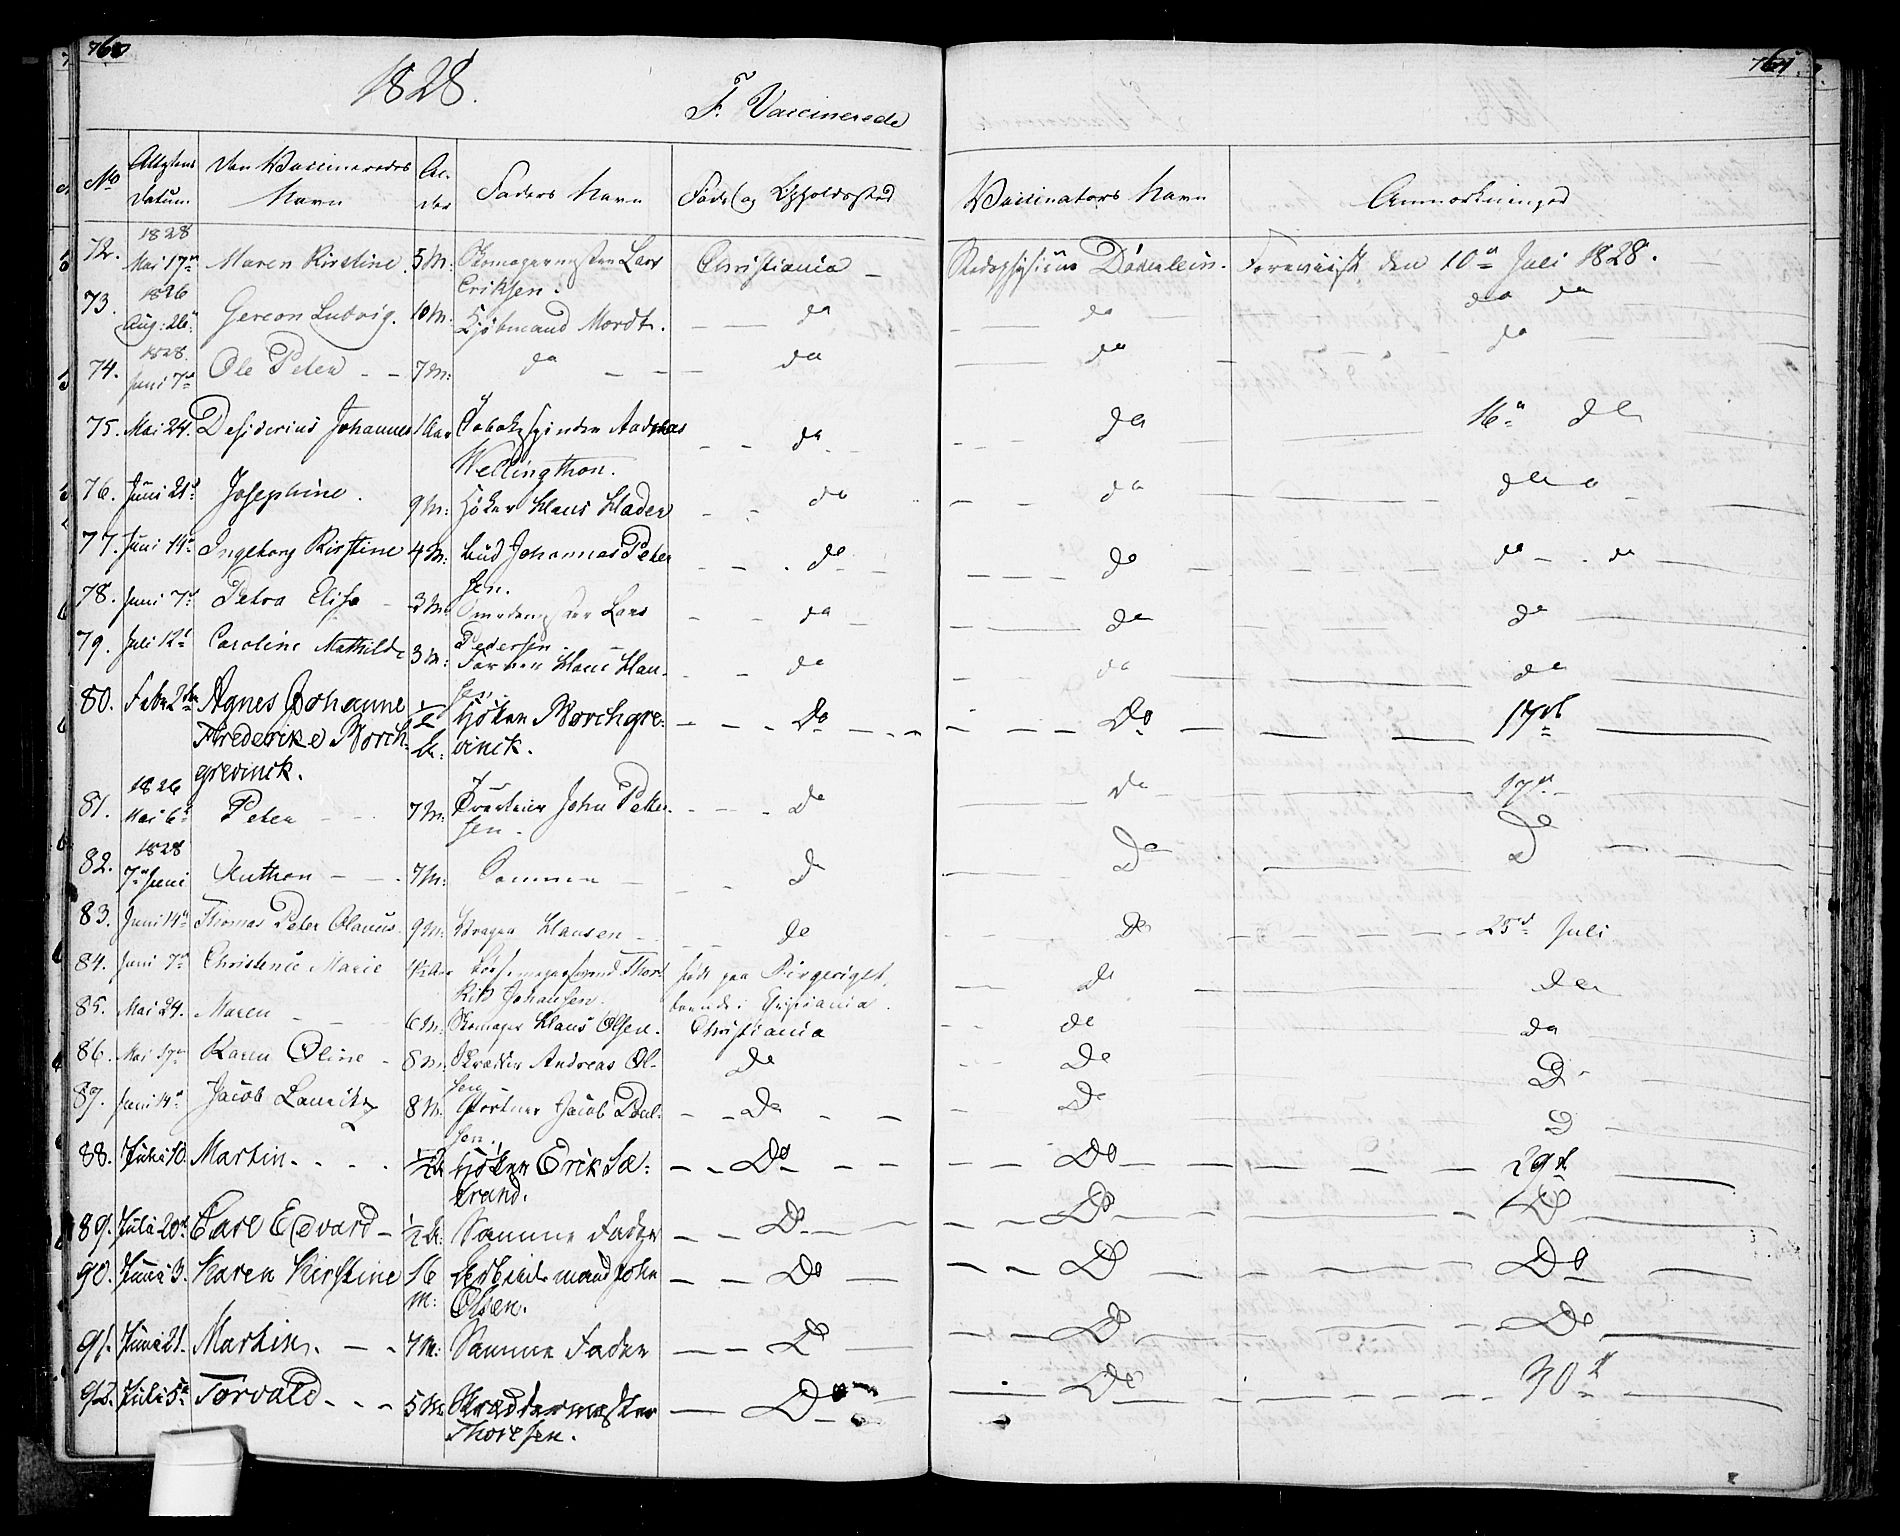 1828.
F. Vaccinerede
No Attestens Datum Den Vaccineredes Navn Al- der Faders Navn Føde og Opholdssted Vaccinators Navn Anmærkninger
72. 1828 Mai 17 Maren Kirstine 5 M: Skomagermester Lars Eriksen. Christiania Stadsphysicus Døderlein. Foreviist den 10 Juli 1828.
73. 1826 Aug: 26 Gereon Ludvig. 10 M. Kjøbmand Mordt. do do do do
74. 1828. Juni 7 Ole Peter 7 M: do do do do
75. Mai 24. Desiderius Johannes 1 Aar Tobakspinder Andreas Wellingthon. do do 16 do
76. Juni 21 Josephine. 9 M: Høker Hans Hader do do do
77. Juni 14 Ingeborg Kirstine 4 M: Bud Johannes Peter sen. do do do do
78. Juni 7 Petra Elise 3 M. Lars Pedersen. do do do
79. Juli 12 Caroline Mathilde 3 M: Farver Hans Han- sen. do do do
80. Febr 2 Agnes Johanne Frederike Borch- grevinck. 1/2 A: Høker Borchgre- vinck. Do Do 17
81. 1826 Mai 6 Peter 7 M: John Peter- sen. do do 17
82. 1828 7 Juni Anthon 7 M: Samme do Do Do
83. Juni 14 Thomas Peter Olaus 9 M: Hansen do do 25 Juli
84. Juni 7 Christence Marie Johansen. født paa Ringeriget, boende i Christiania. do do
85. Mai 24. Maren 6 M. Skomager Hans Olsen. Christiania do do
86. Mai 17 Karen Oline 8 M. Skrædder Andreas Ol- sen do Do D
87. Juni 14 Jacob Lauritz 8 M. Portner Jacob Poul- sen. Do Do D
88. Juni 10. Martin. 1/2 A Høker Erik Sæ- trand. Do Do 29
89. Juli 20 Carl Edvard 1/2 A: Samme Fader Do Do Do
90. Juni 3. Karen Kirstine 16 M: Arbeidsmand John Olsen. Do Do Do
91. Juni 21. Martin. 7 M: Samme Fader Do Do Do
92. Juli 5 Torvald 5 M Skræddermester Thoresen. Do Do 30